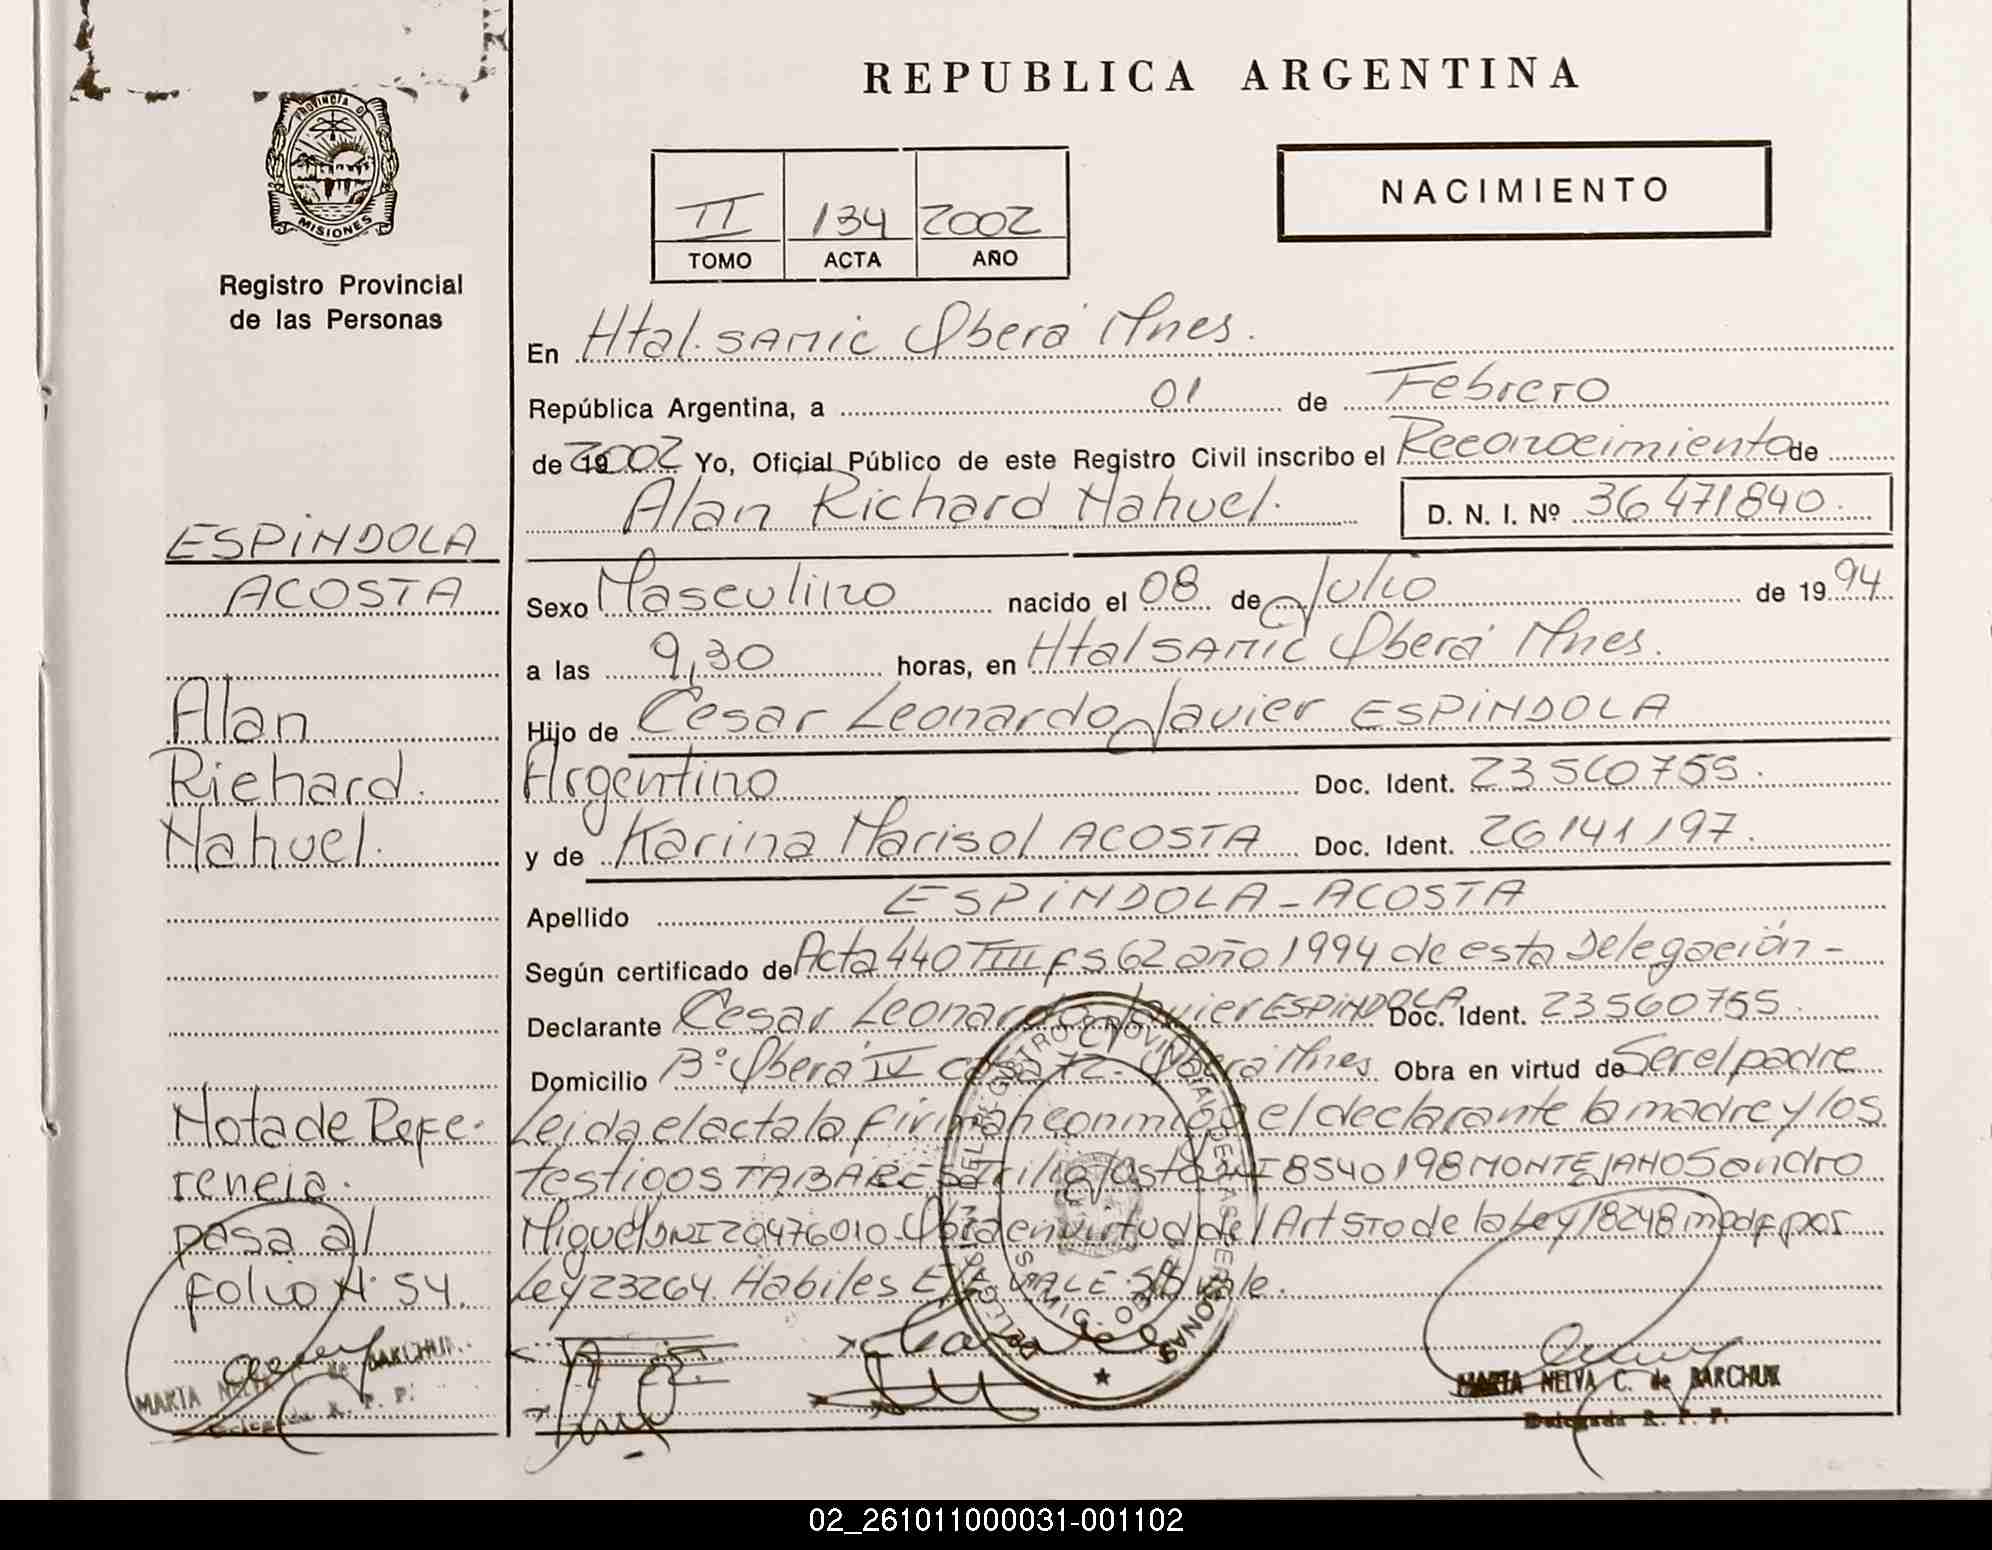 REPUBLICA ARGENTINA
PROVINCIA DE
MISIONES
Registro Provincial
de las Personas
II 134 2002
TOMO ACTA AÑO
NACIMIENTO
En Htal. SAMIC Oberá Mnes.
República Argentina, a 01 de Febrero
de 2002 Yo, Oficial Público de este Registro Civil inscribo el Reconocimiento de
Alan Richard Nahuel. D. N. I. Nº 36471840.
Sexo Masculino nacido el 08 de Julio de 1994
a las 9,30 horas, en Htal SAMIC Oberá Mnes.
Hijo de Cesar Leonardo Javier ESPINDOLA
Argentino Doc. Ident. 23560755.
y de Karina Marisol ACOSTA Doc. Ident. 26141197.
Apellido ESPINDOLA - ACOSTA
Según certificado de Acta 440 TIII fs 62 año 1994 de esta Delegación -
Declarante Cesar Leonardo Javier ESPINDOLA Doc. Ident. 23560755.
Domicilio Bº Oberá IV casa 72 - Oberá Mnes Obra en virtud de Ser el padre
Leida el acta la firman conmigo el declarante la madre y los
testigos TABARES DNI 8540198 MONTEJANO Sandro
Miguel DNI 20476010. Obra en virtud del Art 5TO de la Ley 18248 modf por
Ley 23264. Habiles VALE vale.
MARTA NELVA C. de BARCHUK
Delegada R. P. P.
ESPINDOLA
ACOSTA
Alan
Richard.
Nahuel.
Nota de Refe-
rencia.
pasa al
folio Nº 54.
MARTA NELVA C. de BARCHUK
Delegada R. P. P.
02_261011000031-001102